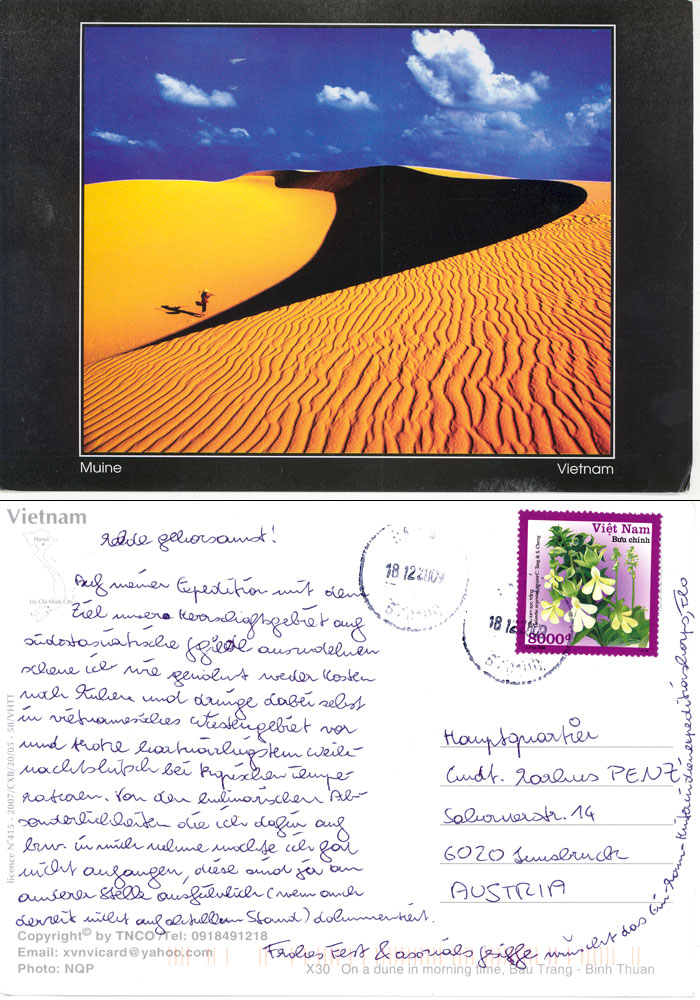 Muine
Vietnam
Vietnam
Hanoi
Ho Chi Minh City
licence N°415 - 2007/CXB/20/05 - 58/VHTT
Melde gehorsamst!
Auf meiner Expedition mit dem
Ziel unsere Herrschaftsgebiet auf
südostasiatische auszudehnen
scheue ich wie gewohnt weder Kosten
noch Mühen und dringe dabei selbst
in vietnamesisches Wüstengebiet vor
und trotze weih-
nachtskitsch bei tropischen Tempe-
raturen. Von den kulinarischen Ab-
sonderlichkeiten die ich dafür auf
bzw. in mich nehme möchte ich gar
nicht anfangen, diese sind ja an
anderer Stelle ausführlich (wenn auch
derzeit nicht auf aktuellem Stand) dokumentiert.
Frohes Fest & wünscht das Ein-Mann-Expeditionskorps, Flo
18 12 2009
18 12 2009
Việt Nam
Bưu chính
8000đ
Hauptquartier
Cmdt. Markus PENZ
14
6020 Innsbruck
AUSTRIA
Copyright© by TNCO? Tel: 0918491218
Email: xvnvicard@yahoo.com
Photo: NQP
X30 On a dune in morning time, Bau Trang - Binh Thuan